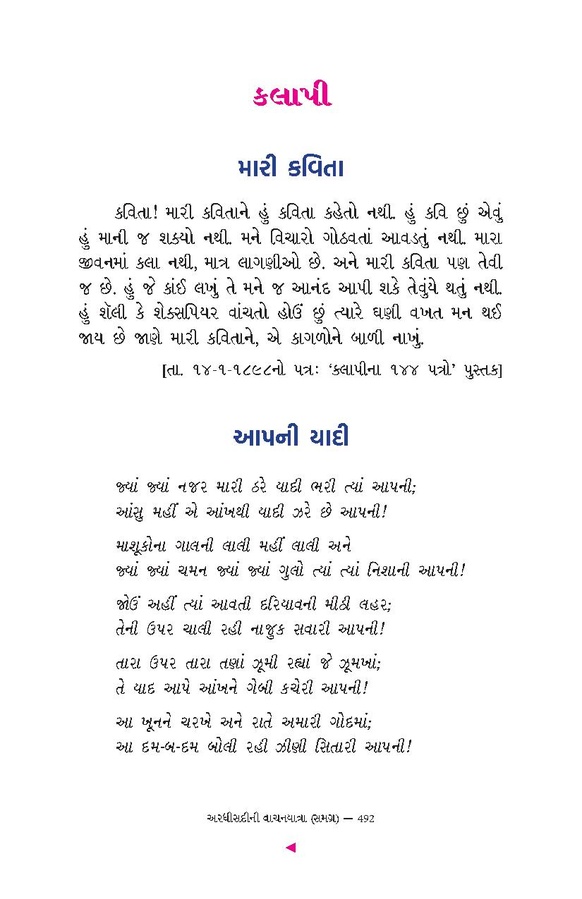 કલાપી
મારી કવિતા
કવિતા! મારી કવિતાને હું કવિતા કહેતો નથી. હું કવિ છું એવું
હું માની જ શક્યો નથી. મને વિચારો ગોઠવતાં આવડતું નથી. મારા
જીવનમાં કલા નથી, માત્ર લાગણીઓ છે. અને મારી કવિતા પણ તેવી
જ છે. હું જે કાંઈ લખું તે મને જ આનંદ આપી શકે તેવુંયે થતું નથી.
હું શૅલી કે શેક્સપિયર વાંચતો હોઉં છું ત્યારે ઘણી વખત મન થઈ
જાય છે જાણે મારી કવિતાને, એ કાગળોને બાળી નાખું.
[તા. ૧૪-૧-૧૮૯૮નો પત્ર: ‘કલાપીના ૧૪૪ પત્રો’ પુસ્તક]
આપની યાદી
જ્યાં જ્યાં નજર મારી ઠરે યાદી ભરી ત્યાં આપની;
આંસુ મહીં એ આંખથી યાદી ઝરે છે આપની!
માશૂકોના ગાલની લાલી મહીં લાલી અને
જ્યાં જ્યાં ચમન જ્યાં જ્યાં ગુલો ત્યાં ત્યાં નિશાની આપની!
જોઉં અહીં ત્યાં આવતી દરિયાવની મીઠી લહર;
તેની ઉપર ચાલી રહી નાજુક સવારી આપની!
તારા ઉપર તારા તણાં ઝૂમી રહ્યાં જે ઝૂમખાં;
તે યાદ આપે આંખને ગેબી કચેરી આપની!
આ ખૂનને ચરખે અને રાતે અમારી ગોદમાં;
આ દમ-બ-દમ બોલી રહી ઝીણી સિતારી આપની!
અરધીસદીની વાચનયાત્રા (સમગ્ર) — 492